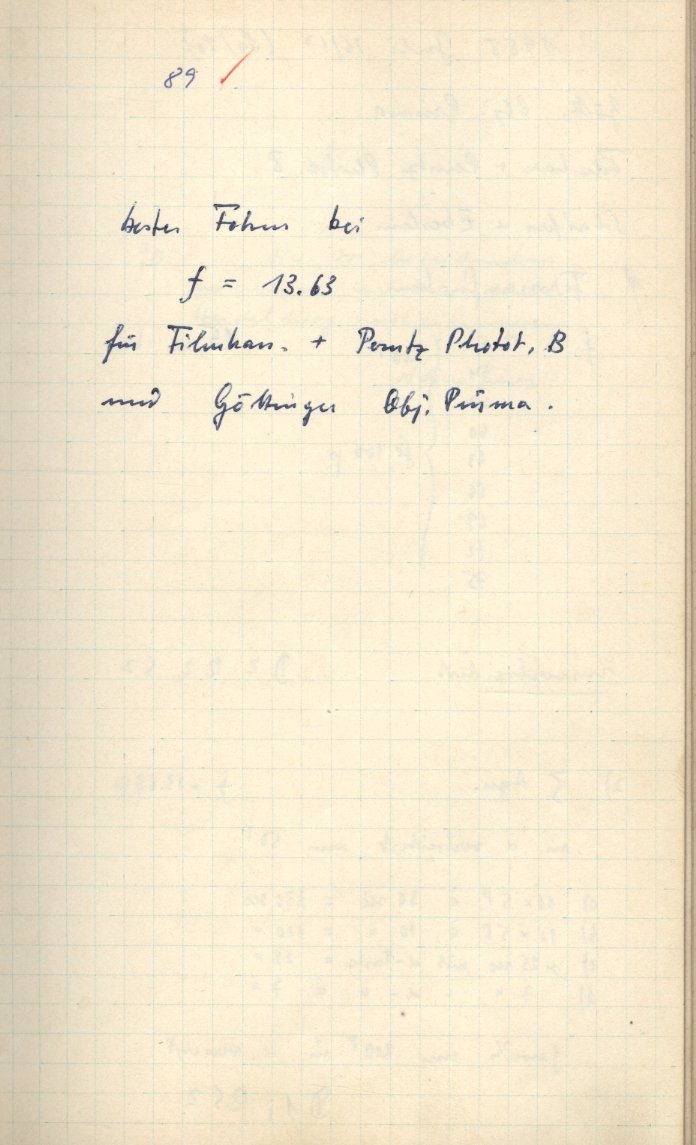 89
bester Fokus bei
f = 13.63
für Filmkam. + Perutz Photot. B
und Göttinger Obj. Prisma.